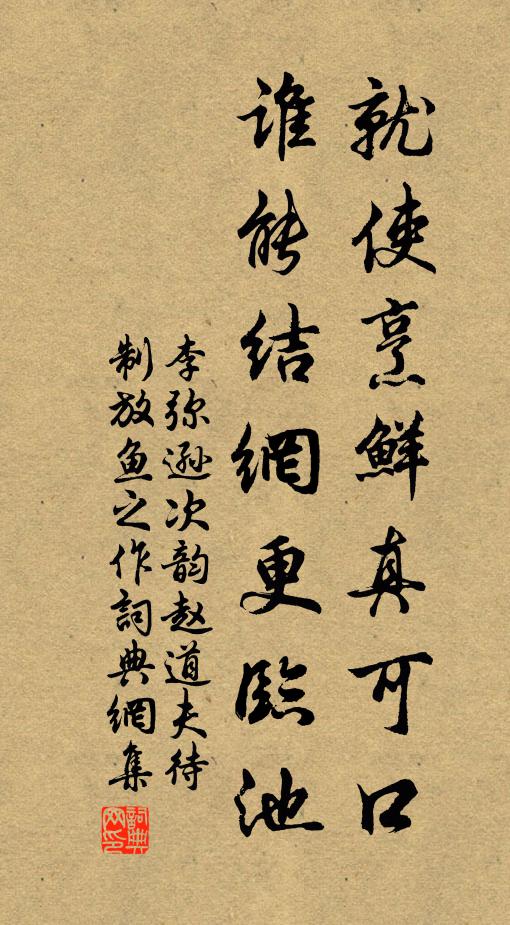 就使烹鮮真可口
谁能结網更臨池
李弥遜次韵赵道夫待
制放魚之作詞典網集
詞典網印